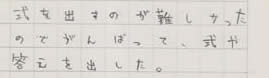 式を出すのが難しかった
のでがんばって、式や
答えを出した。